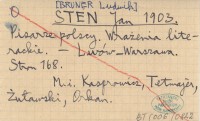 [BRUNER Ludwik]
STEN Jan 1903.
Pisarze polscy. Wrażenia lite-
rackie. — Lwów-Warszawa.
Stron 168.
Mi. Kasprowicz, Tetmajer,
Żuławski, Orkan.